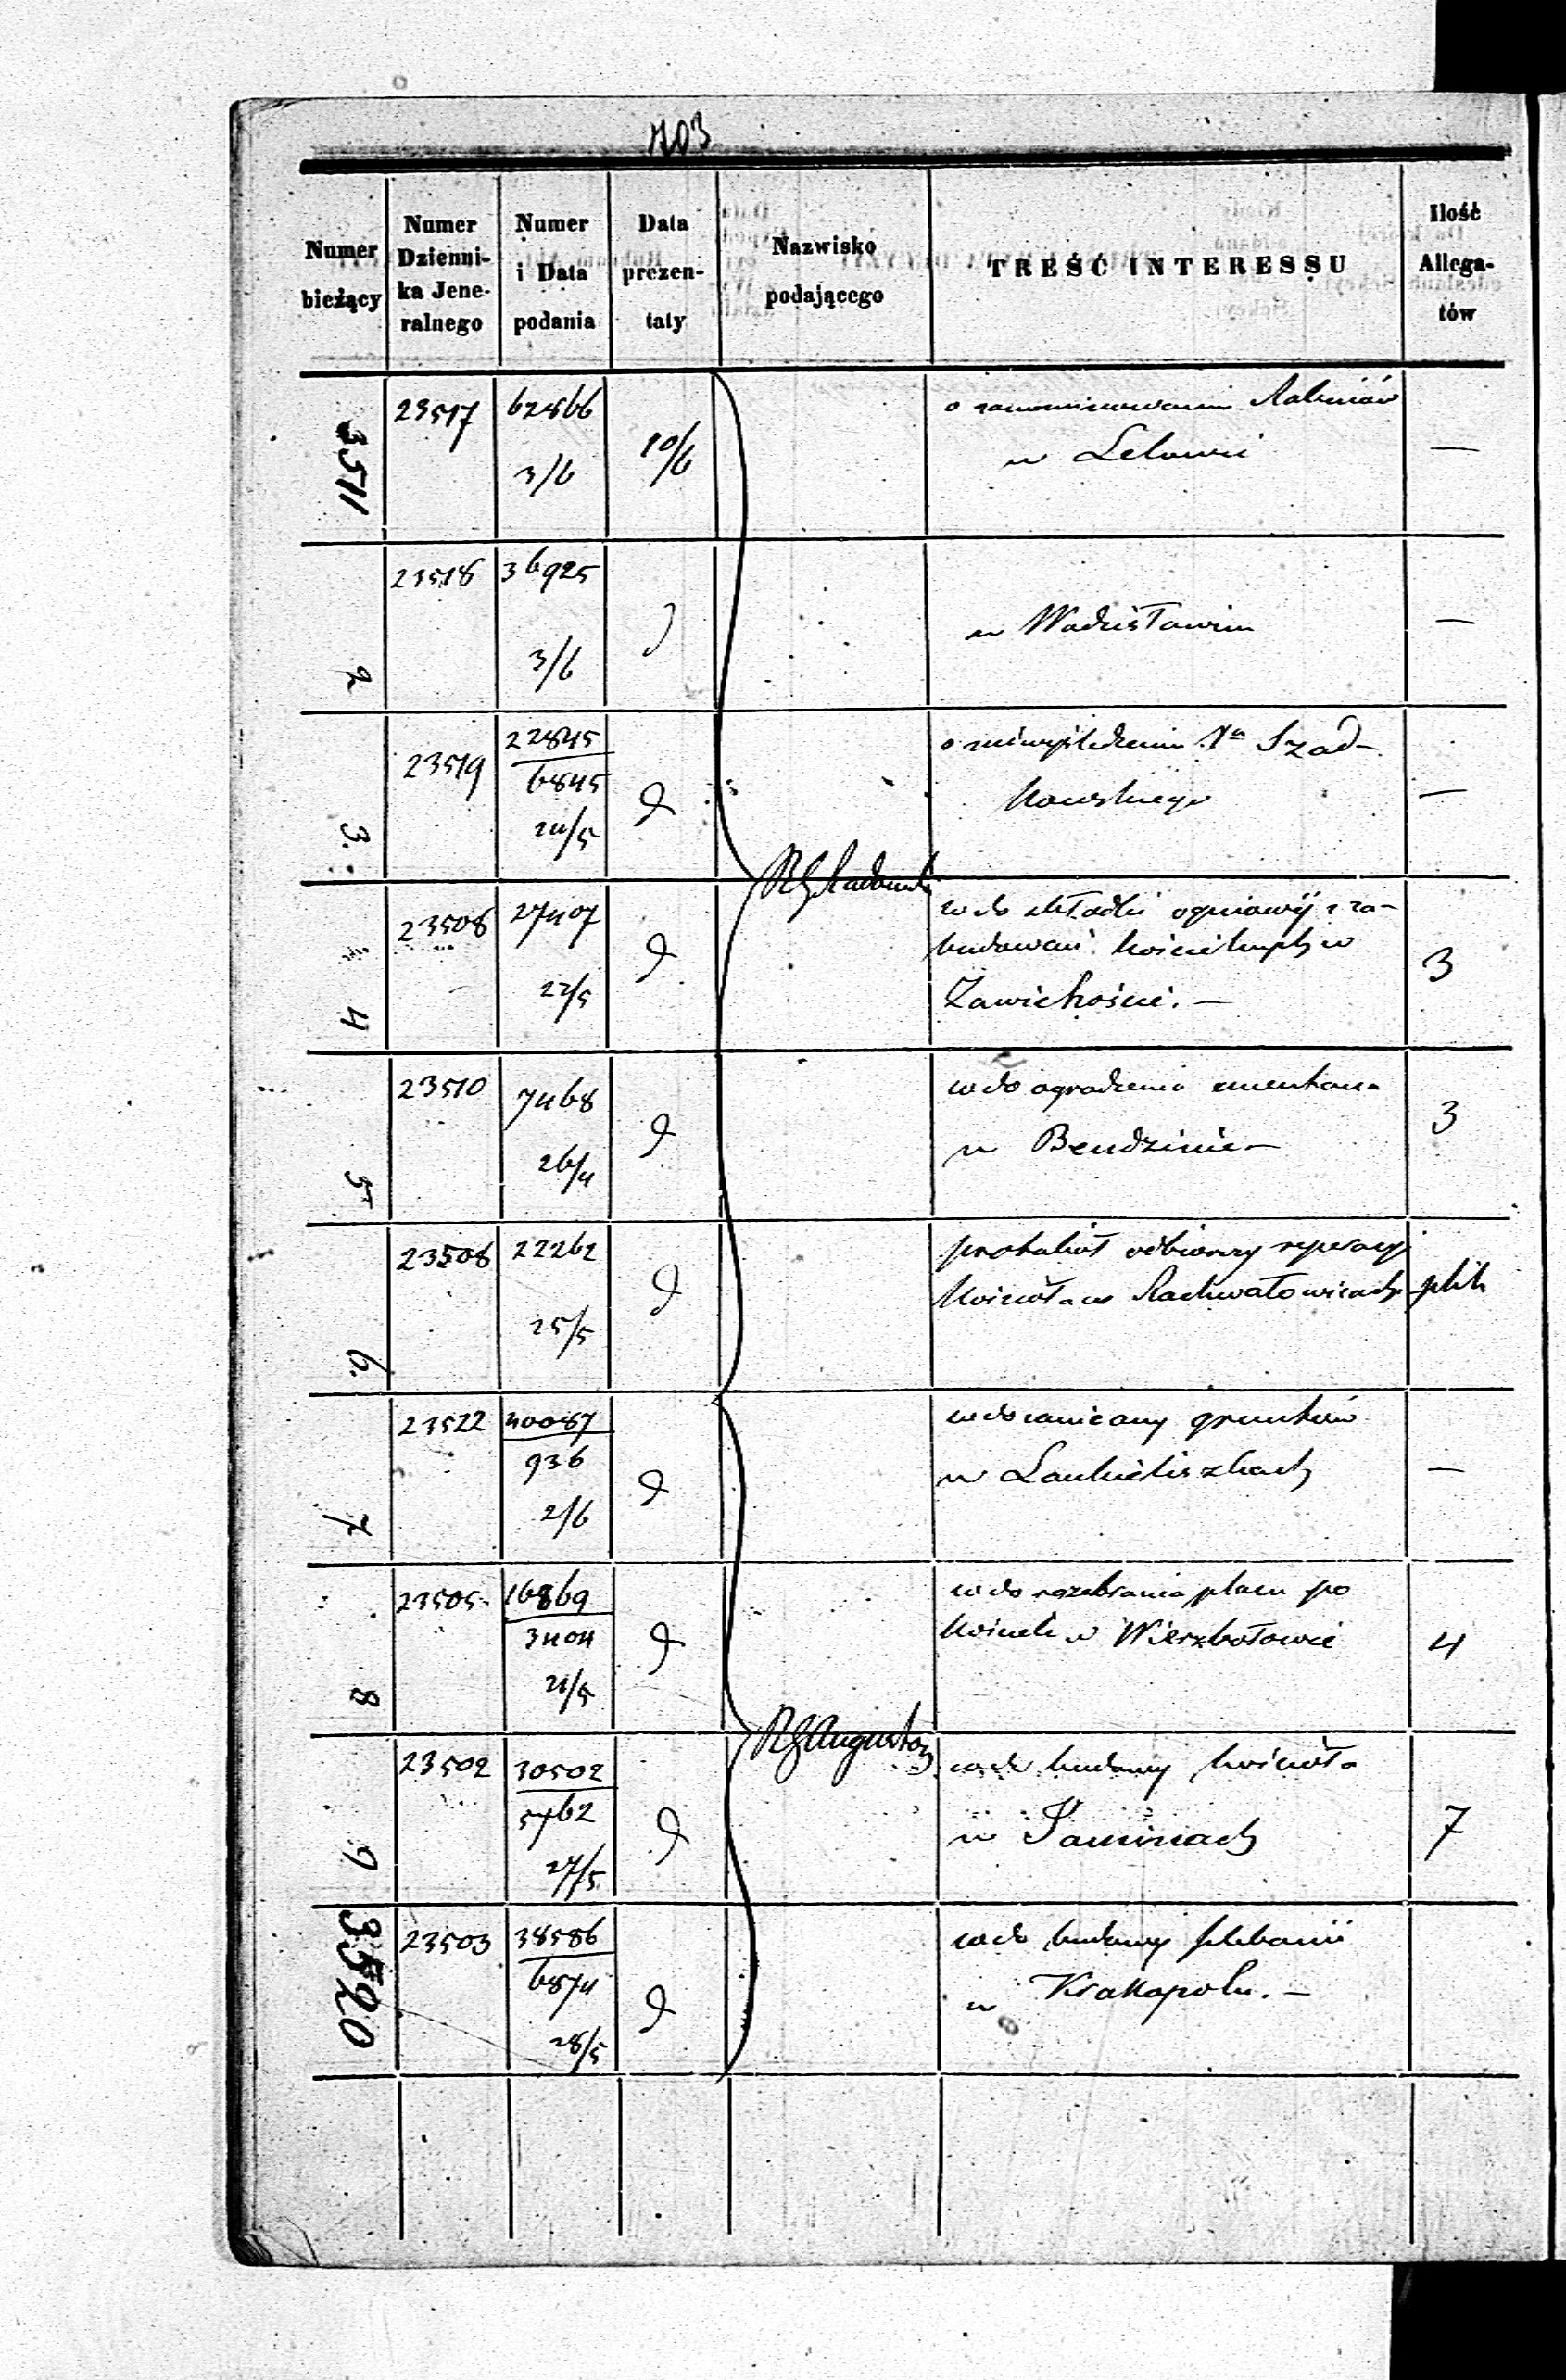 703
Numer bieżący
Numer Dzienni-ka Jene-ralnego
Numer i Data podania
Data prezen-taty
Nazwisko podającego
TREŚĆ INTERESSU
Ilość Allega-tów
3511 23517 62866 3/6 10/6 o Rabinów
w Lelowie —
2 23518 36925 3/6 w Wodzisławiu —
3. 23519 22845 6845 24/5 d o Xa Szad-
kowskiego —
RG Radomski
4 23506 27407 22/5 d wdo składki ogniowéj z za-
budowań kościelnych w
Zawichoście. — 3
5 23510 7468 26/4 d wdo ogrodzenia cmentarza
w Bendzinie — 3
6. 23508 22262 25/5 d protokół odbiorczy reperacyi
kościoła w Rachwałowicach plik
7 23522 40087 936 2/6 d wdo zamiany gruntów
w Lankieliszkach —
8 23505 16869 3404 21/5 d wdo rozebrania placu po
kościele w Wierzbołowie 4
RG Augustow
9 23502 30502 5762 27/5 d wdo budowy kościoła
w 7
3520 23503 38586 6874 28/5 d wdo budowy plebanii
w Krakopolu. —